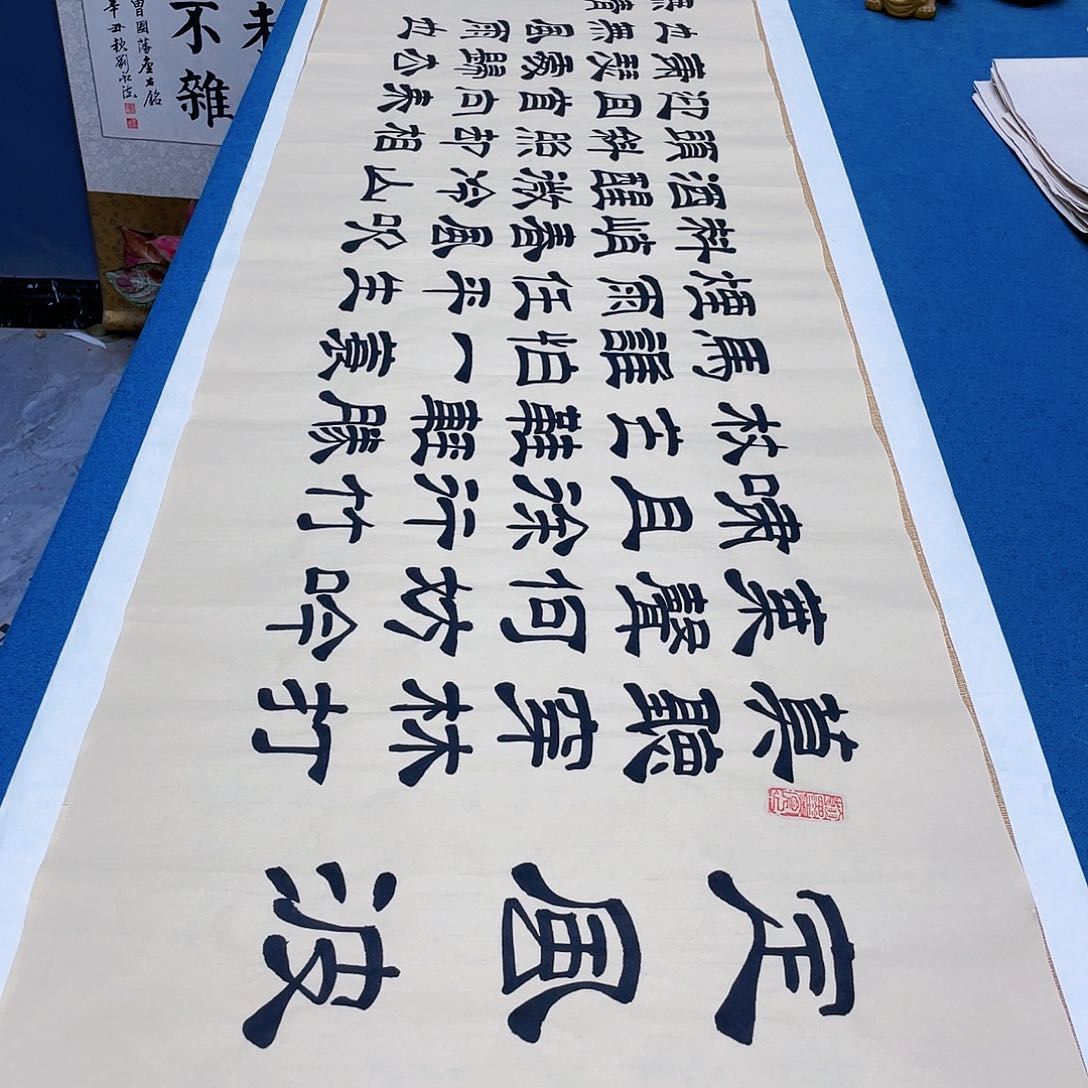 定風波
莫聽穿林打
葉聲何妨吟
嘯且徐行竹
杖芒鞋輕勝
馬誰怕一蓑
煙雨任平生
料峭春風吹
酒醒微冷山
頭斜照却相
迎回首向來
蕭瑟處歸去
也無風雨也
無晴
不雜
曾國藩座右銘
辛丑秋劉